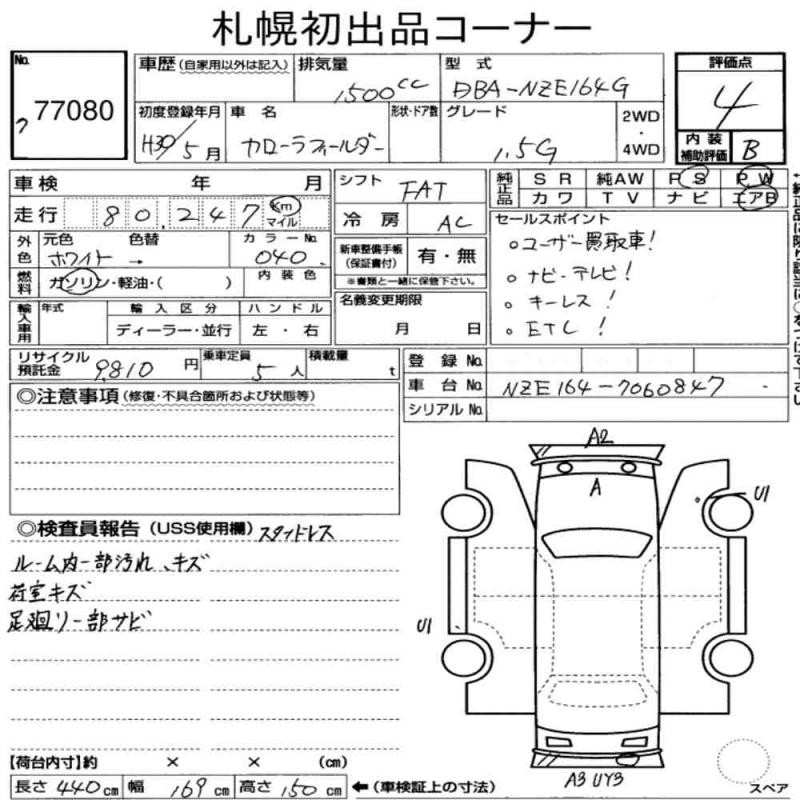 札幌初出品コーナー
No. 77080
ウ
車歴 (自家用以外は記入)
排気量 1500cc
型式 DBA-NZE164G
評価点 4
内装補助評価 B
初度登録年月 H30/5月
車名 カローラフィールダー
形状・ドア数
グレード 1.5G
2WD・4WD
車検 年 月
走行 80,247 km マイル
シフト FAT
冷房 AC
純正品 SR 純AW PS PW
カワ TV ナビ エアB
外色 元色 ホワイト 色替 → カラーNo. 040
燃料 ガソリン・軽油・( ) 内装色
新車整備手帳(保証書付) 有・無
※書類と一緒に保管下さい。
セールスポイント
○ユーザー買取車!
○ナビ・テレビ!
○キーレス!
○ETC!
輸入車用 年式 輸入区分 ディーラー・並行 ハンドル 左・右
名義変更期限 月 日
リサイクル預託金 9,810円 乗車定員 5人 積載量 t
登録No.
車台No. NZE164-7060847
シリアルNo.
◎注意事項 (修復・不具合箇所および状態等)
◎検査員報告 (USS使用欄) スタッドレス
ルーム内一部汚れ、キズ
荷室キズ
足廻り一部サビ
A2
A
U1
U1
A3 UY3
スペア
【荷台内寸】約 × × (cm)
長さ 440cm 幅 169cm 高さ 150cm ←(車検証上の寸法)